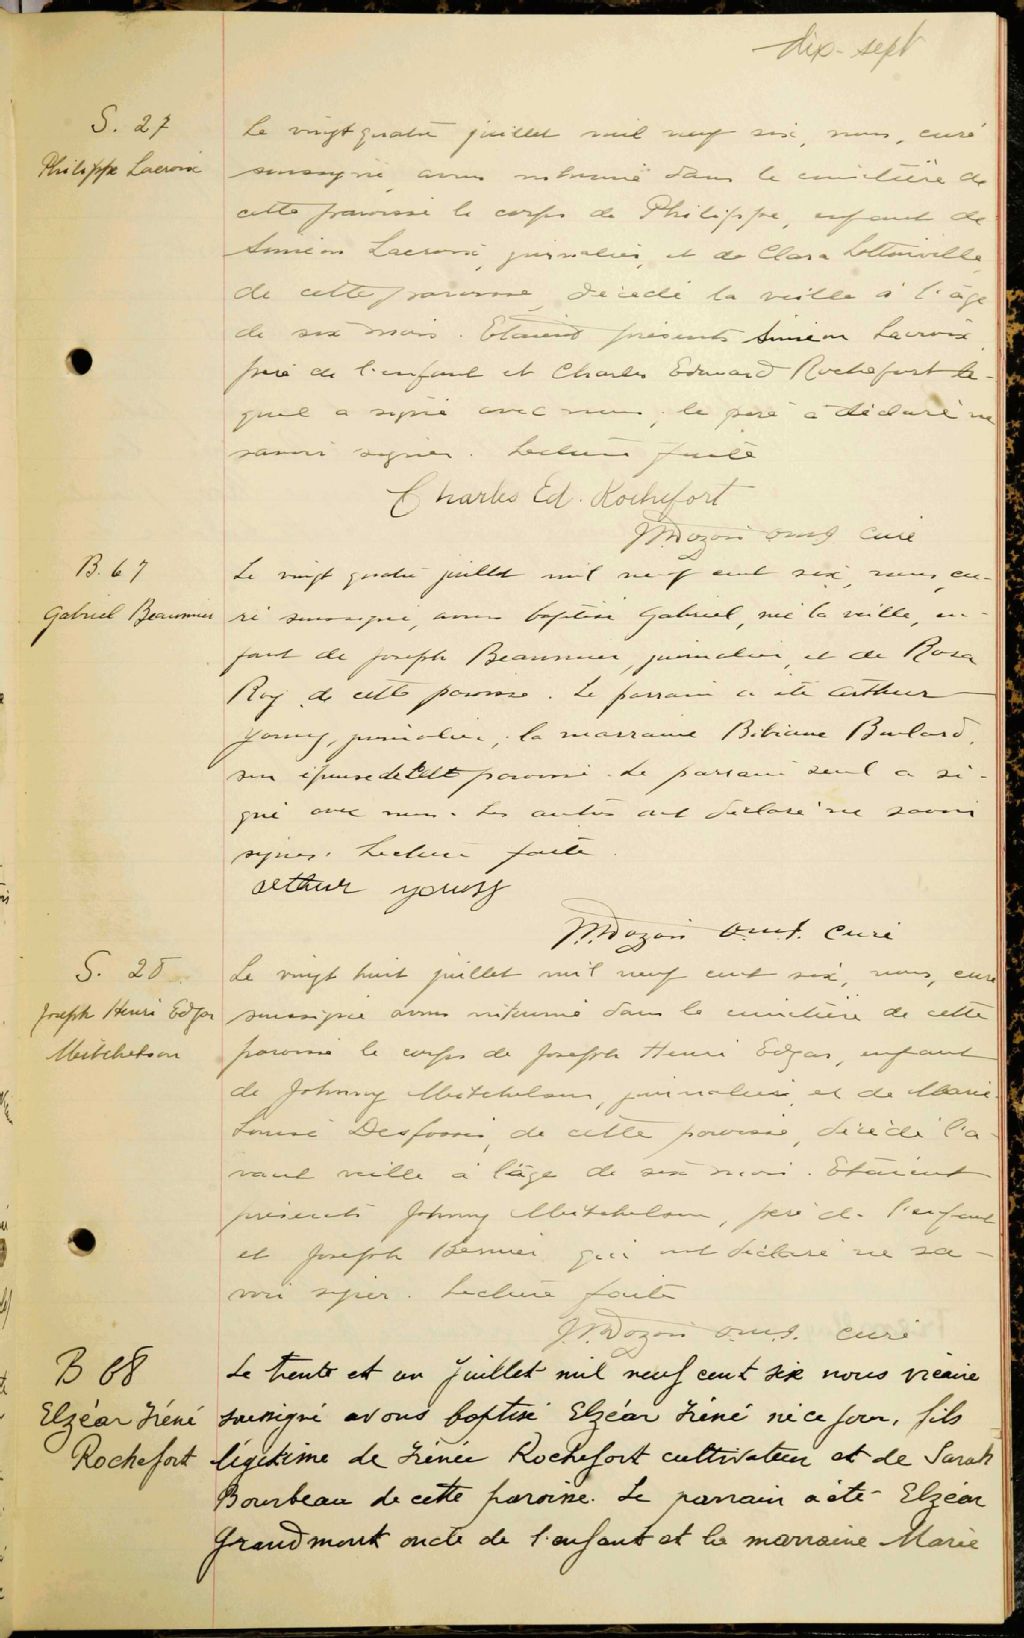 dix-sept
S. 27
Philippe Lacroix
Le vingt quatre juillet mil neuf six, nous, curé
soussigné, avons inhumé dans le cimetière de
cette paroisse le corps de Philippe, enfant de
Siméon Lacroix, journalier, et de Clara Lottinville
de cette paroisse, décédé la veille à l'âge
de six mois. Etaient présents Siméon Lacroix,
père de l'enfant et Charles Edouard Rochefort le-
quel a signé avec nous, le père a déclaré ne
savoir signer. Lecture faite
Charles Ed. Rochefort
curé
B. 67
Gabriel Beaumier
Le vingt quatre juillet mil neuf cent six, nous, cu-
ré soussigné, avons baptisé Gabriel, né la veille, en-
fant de Joseph Beaumier, journalier, et de Rosa
Roy de cette paroisse. Le parrain a été Arthur
Young, journalier, la marraine Bibiane Boulard,
son épouse de cette paroisse. Le parrain seul a si-
gné avec nous. Les autres ont déclaré ne savoir
signer. Lecture faite.
Arthur Young
curé
S. 28
Joseph Henri Edgar
Mitchelson
Le vingt huit juillet mil neuf cent six, nous, curé
soussigné avons inhumé dans le cimetière de cette
paroisse le corps de Joseph Henri Edgar, enfant
de Johnny Mitchelson, journalier, et de Marie-
Louise Desfossés, de cette paroisse, décédé l'a-
vant veille à l'âge de six mois. Etaient
présents Johnny Mitchelson, père de l'enfant
et Joseph Bernier qui ont déclaré ne sa-
voir signer. Lecture faite
curé
B 68
Elzéar Iréné
Rochefort
Le trente et un Juillet mil neuf cent six nous vicaire
soussigné avons baptisé Elzéar Iréné né ce jour, fils
légitime de Irénée Rochefort cultivateur et de Sarah
Bourbeau de cette paroisse. Le parrain a été Elzéar
Grandmont oncle de l'enfant et la marraine Marie